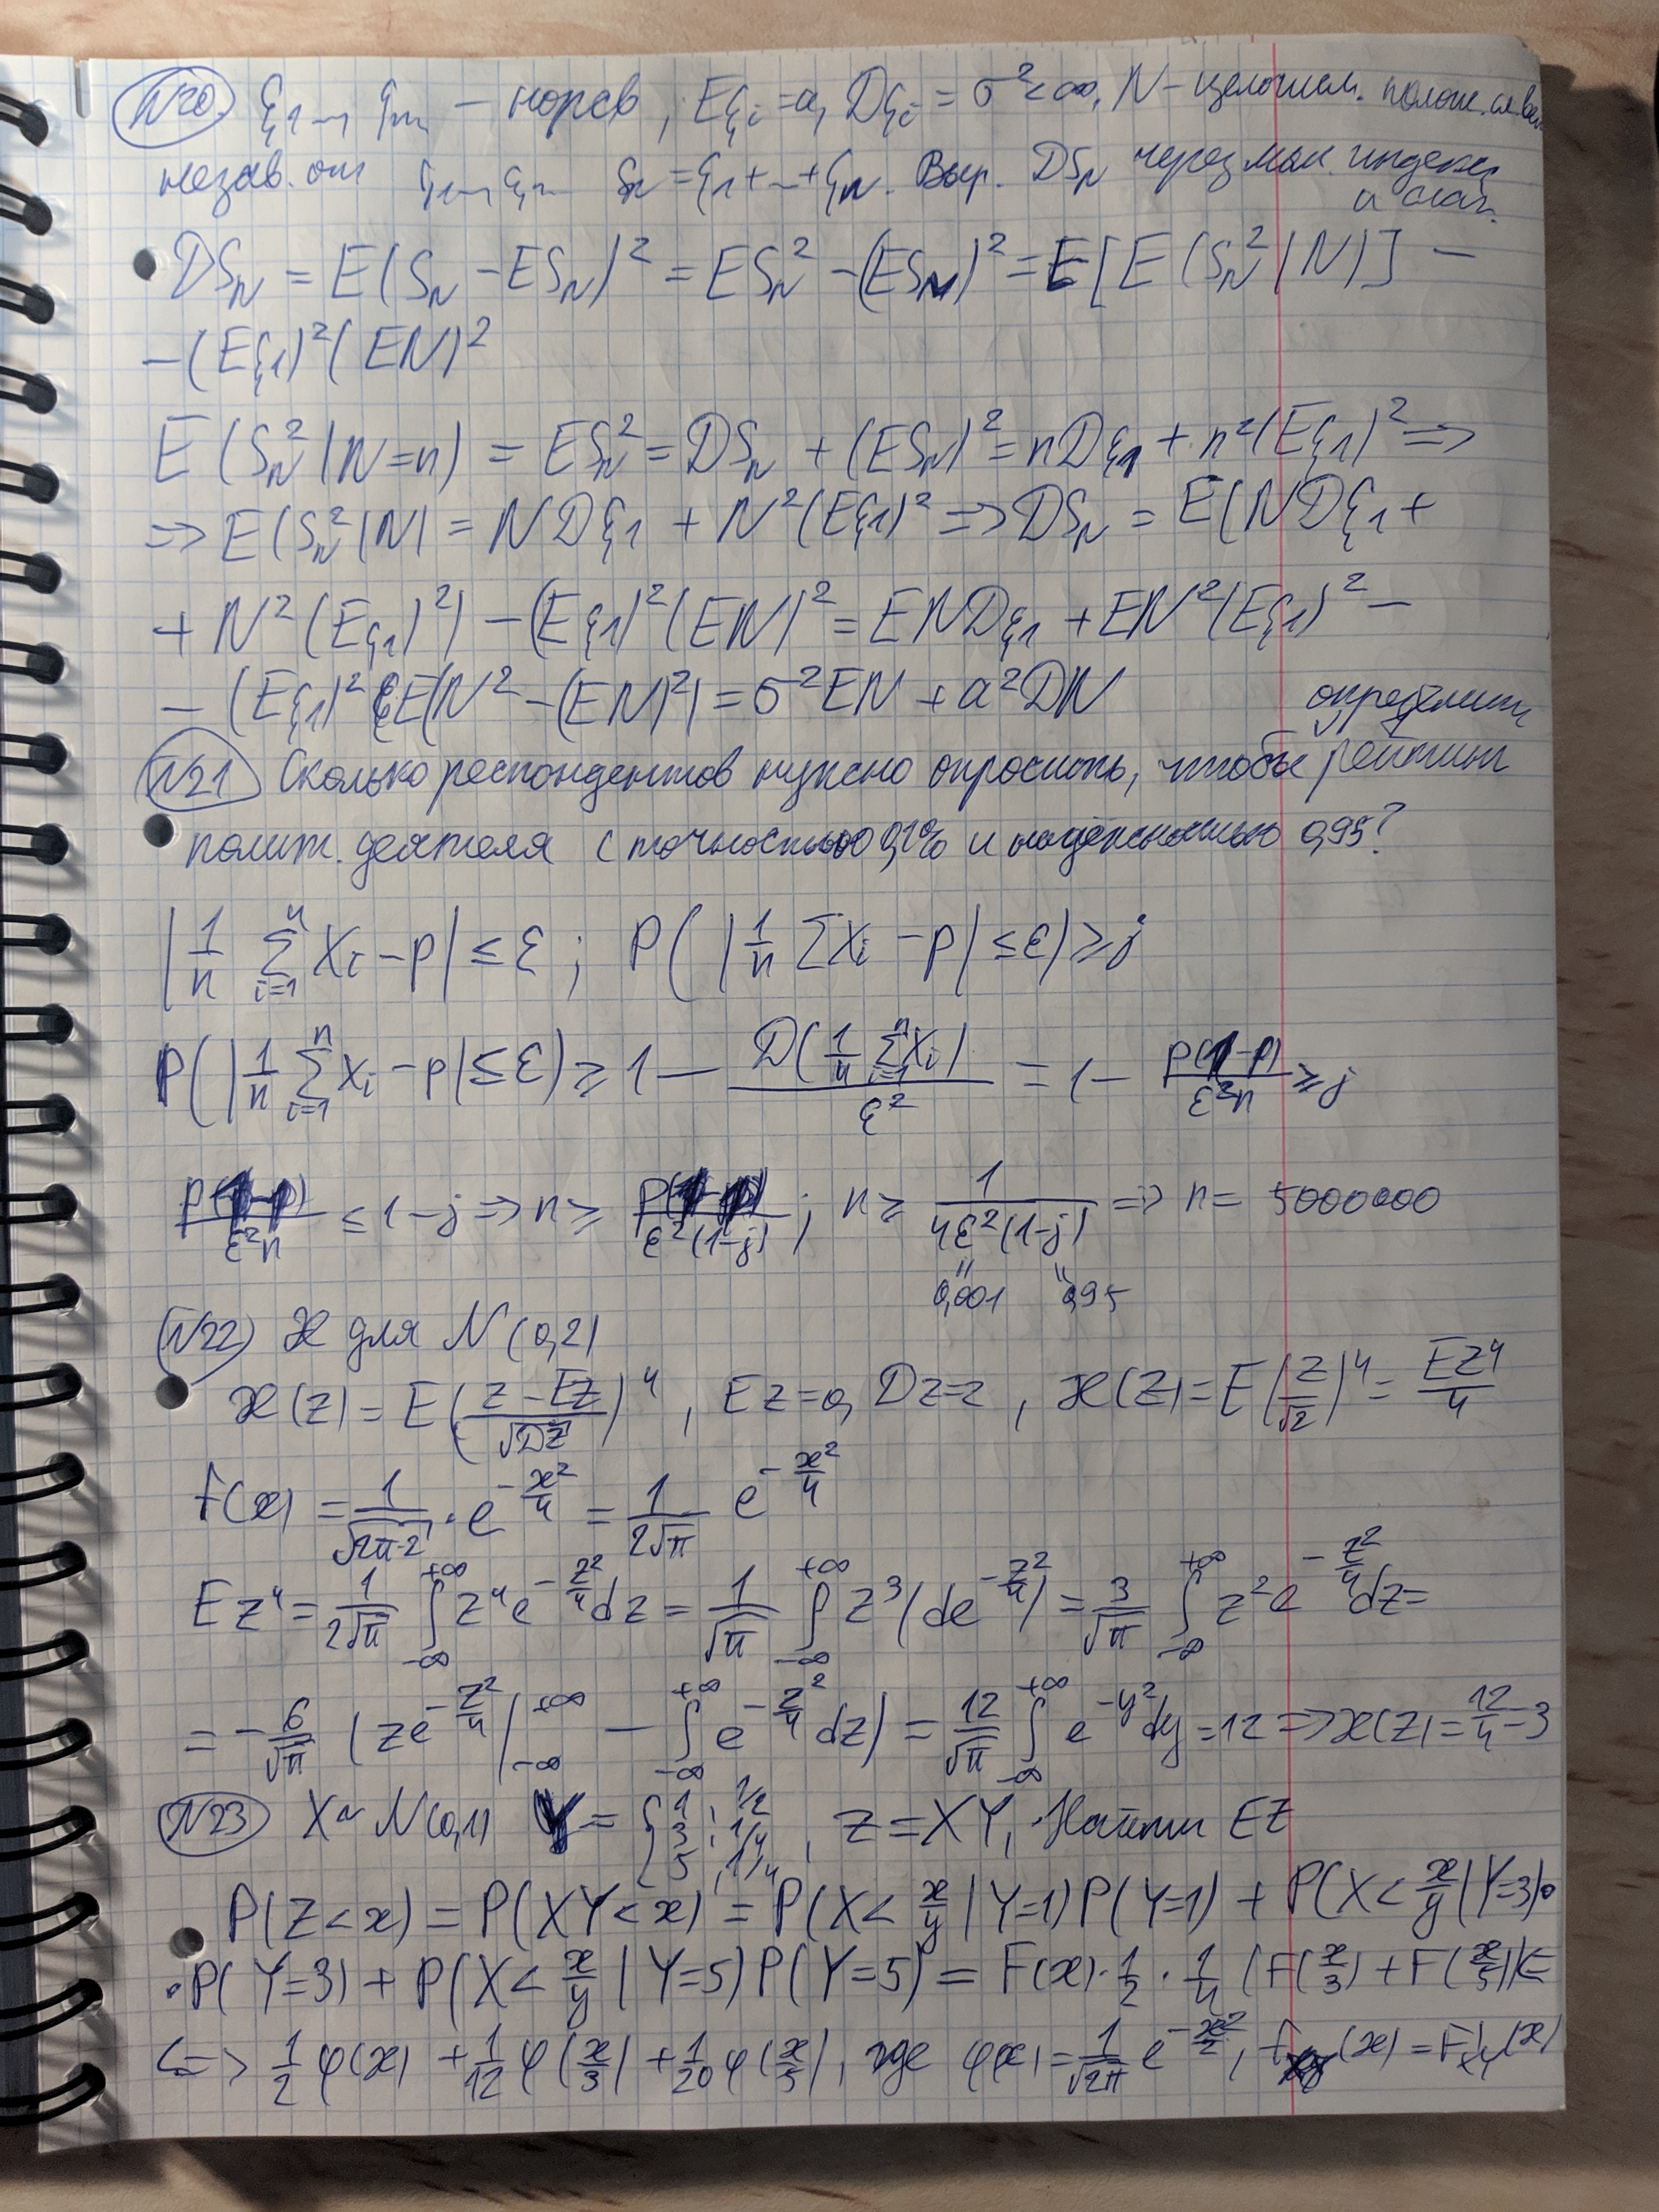 N20. ξ1 ... ξn ... – норсв, Eξi = a, Dξi = σ² < ∞, N – целочисл. полож. сл. вел
незав. от ξ1 ... ξn ... Sn = ξ1 + ... + ξn. Выр. DSN через мом. индекс
и слаг.
DSN = E(SN – ESN)² = ESN² – (ESN)² = E[E(SN²|N)] –
– (Eξ1)²(EN)²
E(SN²|N=n) = ESN² = DSN + (ESN)² = nDξ1 + n²(Eξ1)² =>
=> E(SN²|N) = NDξ1 + N²(Eξ1)² => DSN = E(NDξ1 +
+ N²(Eξ1)²) – (Eξ1)²(EN)² = ENDξ1 + EN²(Eξ1)² –
– (Eξ1)² (E(N² – (EN)²) = σ²EN + a²DN
определить
N21 Сколько респондентов нужно опросить, чтобы рейтинг
полит. деятеля с точностью 0,1% и надежностью 0,95?
|1/n ∑_{i=1}^{n} Xi – p| ≤ ε; P(|1/n ∑Xi – p| ≤ ε) ≥ j
P(|1/n ∑_{i=1}^{n} Xi – p| ≤ ε) ≥ 1 – D(1/n ∑_{i=1}^{n} Xi)/ε² = 1 – p(1-p)/ε²n ≥ j
p(1-p)/ε²n ≤ 1-j => n ≥ p(1-p)/ε²(1-j); n ≥ 1/4ε²(1-j) => n = 5000000
0,001 0,95
N22 æ для N(0,2)
æ(z) = E((z – Ez)/√Dz)⁴, Ez = 0, Dz = 2, æ(z) = E(z/√2)⁴ = Ez⁴/4
f(x) = 1/√(2π·2) · e^{-x²/4} = 1/(2√π) e^{-x²/4}
Ez⁴ = 1/(2√π) ∫_{-∞}^{+∞} z⁴e^{-z²/4}dz = 1/√π ∫_{-∞}^{+∞} z³(de^{-z²/4}) = 3/√π ∫_{-∞}^{+∞} z²e^{-z²/4}dz =
= – 6/√π (ze^{-z²/4}|_{-∞}^{+∞} – ∫_{-∞}^{+∞} e^{-z²/4}dz) = 12/√π ∫_{-∞}^{+∞} e^{-y²}dy = 12 => æ(z) = 12/4 – 3
N23 X ~ N(0,1) Y = {1, 1/2 3, 1/4 5, 1/4, Z = XY, Найти EZ
P(Z < x) = P(XY < x) = P(X < x/y | Y=1)P(Y=1) + P(X < x/y | Y=3)·
·P(Y=3) + P(X < x/y | Y=5)P(Y=5) = F(x)·1/2 · 1/4 (F(x/3) + F(x/5)) <=
<=> 1/2 φ(x) + 1/12 φ(x/3) + 1/20 φ(x/5), где φ(x) = 1/√2π e^{-x²/2}, f (x) = F'xy(x)